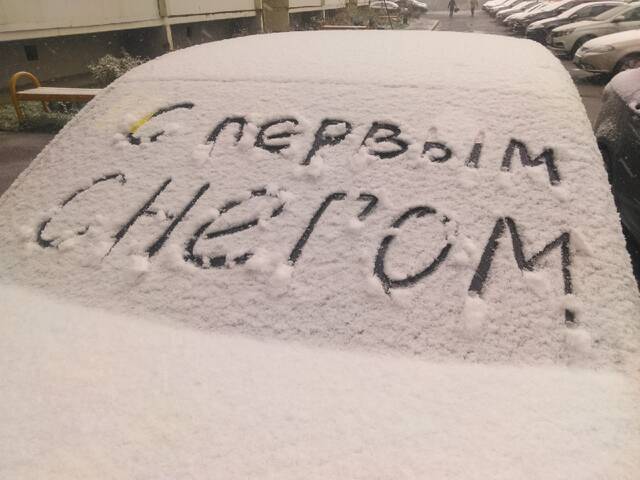 С первым
Снегом